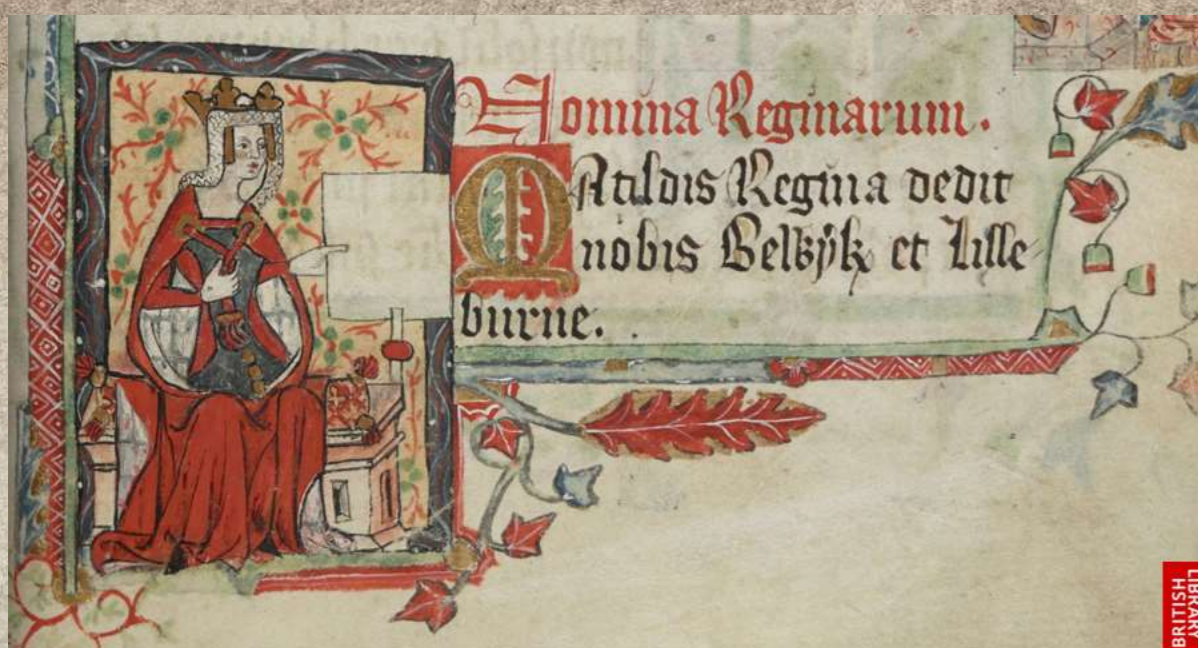 Nomina Reginarum.
MAtildis Regina dedit
nobis Belwijk et Lille
burne.
BRITISH
LIBRARY